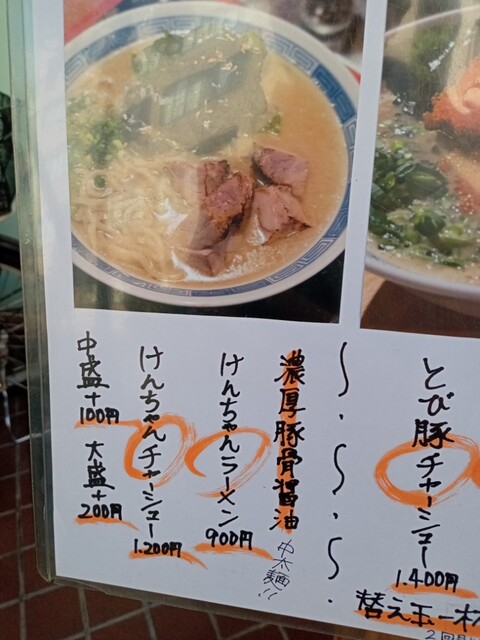 とび豚チャーシュー
1.400円
替え玉一杯
濃厚豚骨醤油
中太麺!!
けんちゃんラーメン
900円
けんちゃんチャーシュー
1.200円
中盛+100円
大盛+200円